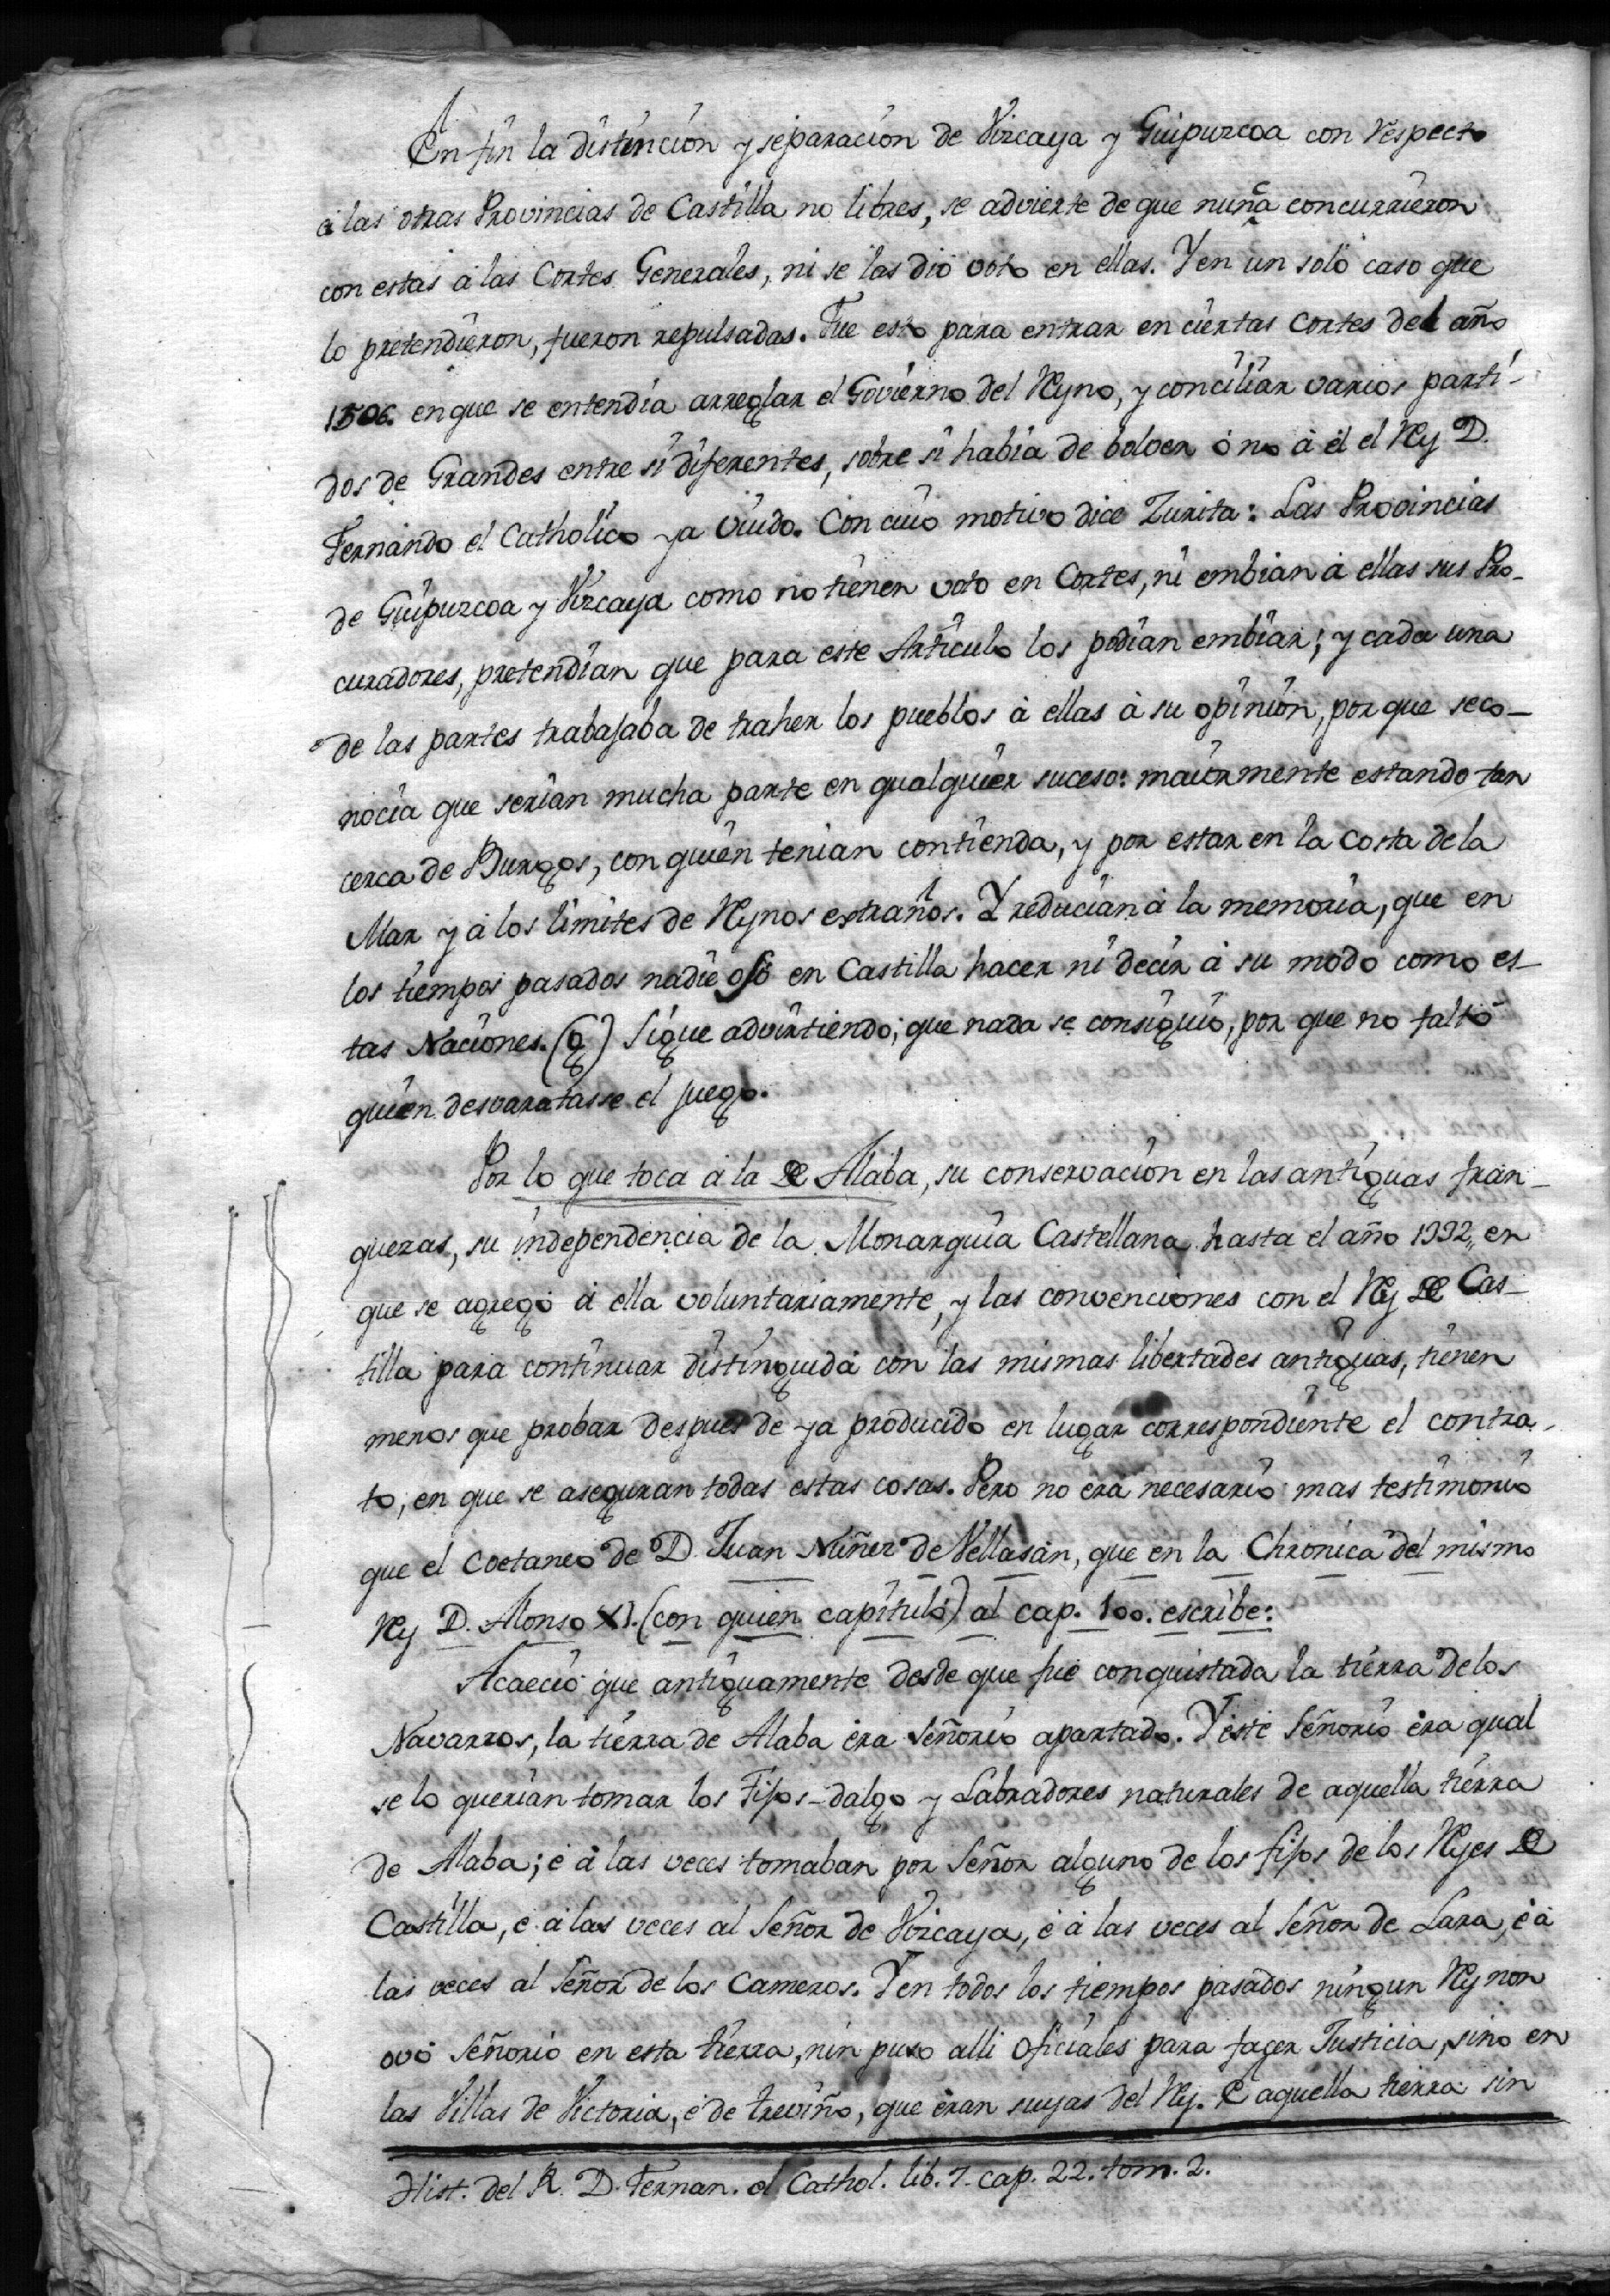 En fin la distincion y separacion de Vizcaya y Guipuzcoa con respecto
à las otras Provincias de Castilla no libres, se advierte de que nunca concurrieron
con estas à las Cortes Generales, ni se las dió voto en ellas. Y en un solo caso que
lo pretendieron, fueron repulsadas. Fue esto para entrar en ciertas Cortes del año
1506. en que se entendia arreglar el Govierno del Reyno, y conciliar varios parti-
dos de Grandes entre si diferentes, sobre si habia de bolver ò no à èl el Rey D.
Fernando el Catholico ya viudo. Con cuio motivo dice Zurita: Las Provincias
de Guipuzcoa y Vizcaya como no tienen voto en Cortes, ni embian à ellas sus Pro-
curadores, pretendian que para este Articulo los podian embiar; y cada una
de las partes trabajaba de traher los pueblos à ellas à su opinion, por que se co-
nocia que serian mucha parte en qualquier suceso: maiormente estando tan
cerca de Burgos, con quien tenian contienda, y por estar en la Costa de la
Mar y à los limites de Reynos extraños. Y reducian à la memoria, que en
los tiempos pasados nadie osó en Castilla hacer ni decir à su modo como es-
tas Naciones. (g) Sigue advirtiendo; que nada se consiguió, por que no faltó
quien desvaratasse el juego.
Por lo que toca à la de Alaba, su conservacion en las antiguas fran-
quezas, su independencia de la Monarquia Castellana hasta el año 1332, en
que se agregó à ella voluntariamente, y las convenciones con el Rey de Cas-
tilla para continuar distinguida con las mismas libertades antiguas, tienen
menos que probar despues de ya producido en lugar correspondiente el contra-
to, en que se aseguran todas estas cosas. Pero no era necesario mas testimonio
que el coetaneo de D. Juan Nuñez de Vellasan, que en la Chronica del mismo
Rey D. Alonso XI. (con quien capituló) al cap. 100. escribe:
Acaeció que antiguamente desde que fue conquistada la tierra de los
Navarros, la tierra de Alaba era Señorio apartado. Y este Señorio era qual
se lo querian tomar los Fijos-dalgo y Labradores naturales de aquella tierra
de Alaba; è à las veces tomaban por Señor alguno de los fijos de los Reyes de
Castilla, è à las veces al Señor de Vizcaya, è à las veces al Señor de Lara, è à
las veces al Señor de los Cameros. Y en todos los tiempos pasados ningun Rey non
ovo Señorio en esta tierra, nin puso alli Oficiales para façer Justicia, sino en
las Villas de Victoria, è de Treviño, que eran suyas del Rey. E aquella tierra sin
Hist. del R. D. Fernan. el Cathol. lib. 7. cap. 22. tom. 2.